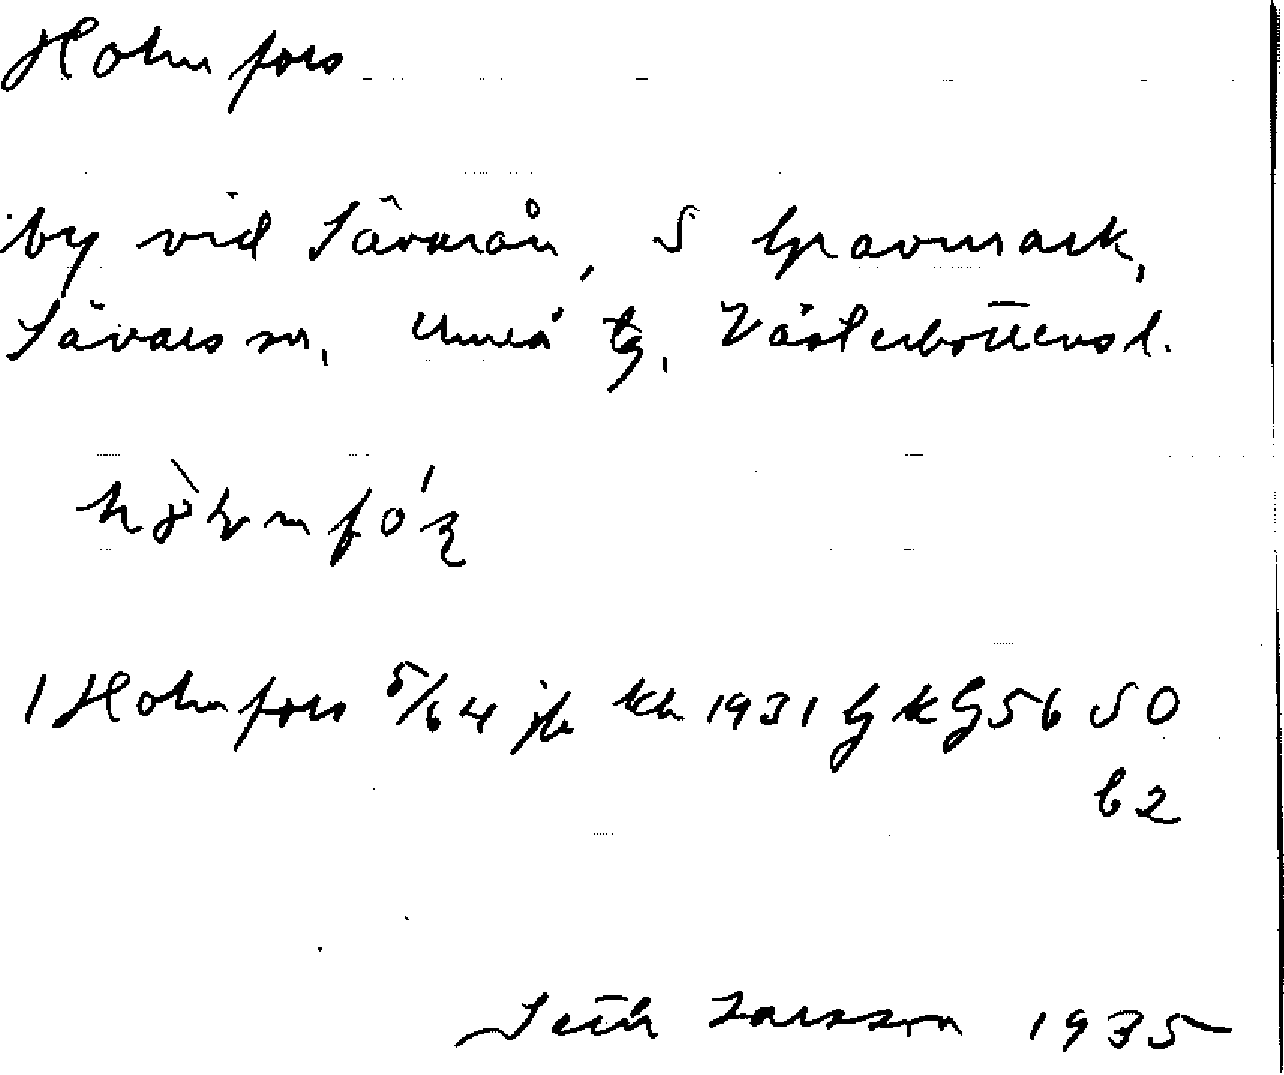 Holmfors
by vid Sävarån, S Gravmark,
Sävars sn, Umeå tg, Västerbottens l.
1 Holmfors 5/64 jb kh 1931 G k G56 SO
b2
Seth Larsson 1935